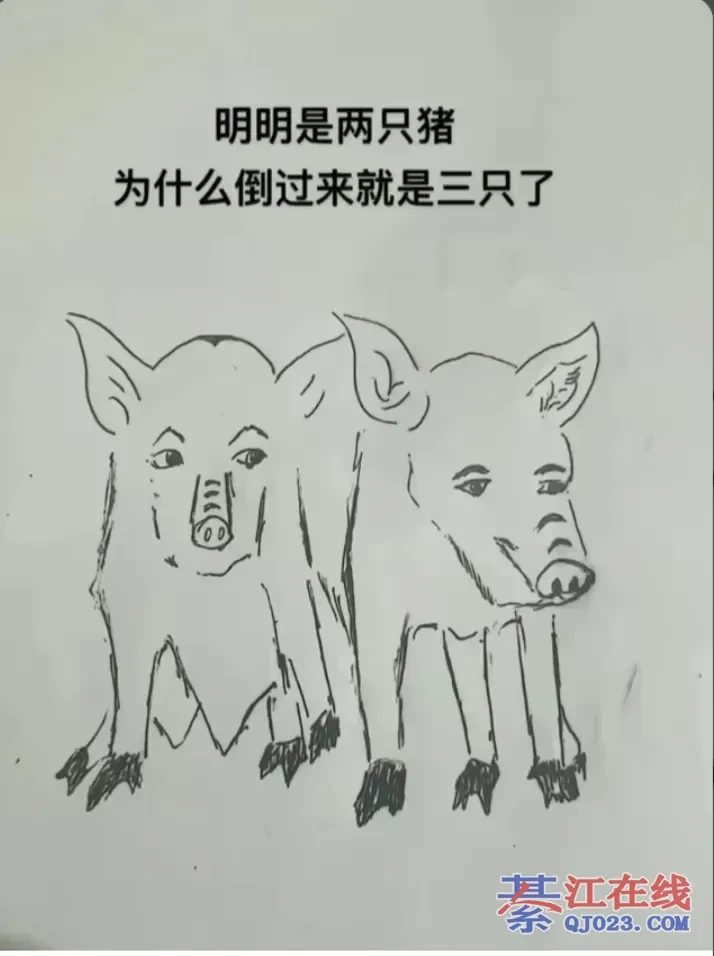 明明是两只猪
为什么倒过来就是三只了
綦江在线
QJ023.COM